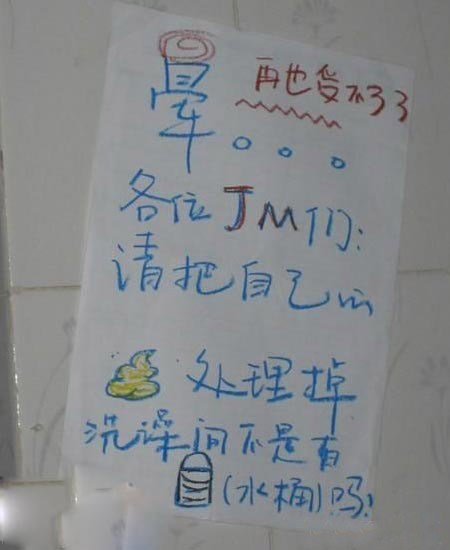 晕。。。 再也受不了了
各位JM们:
请把自己的
处理掉
洗澡间不是有
(水桶)吗!